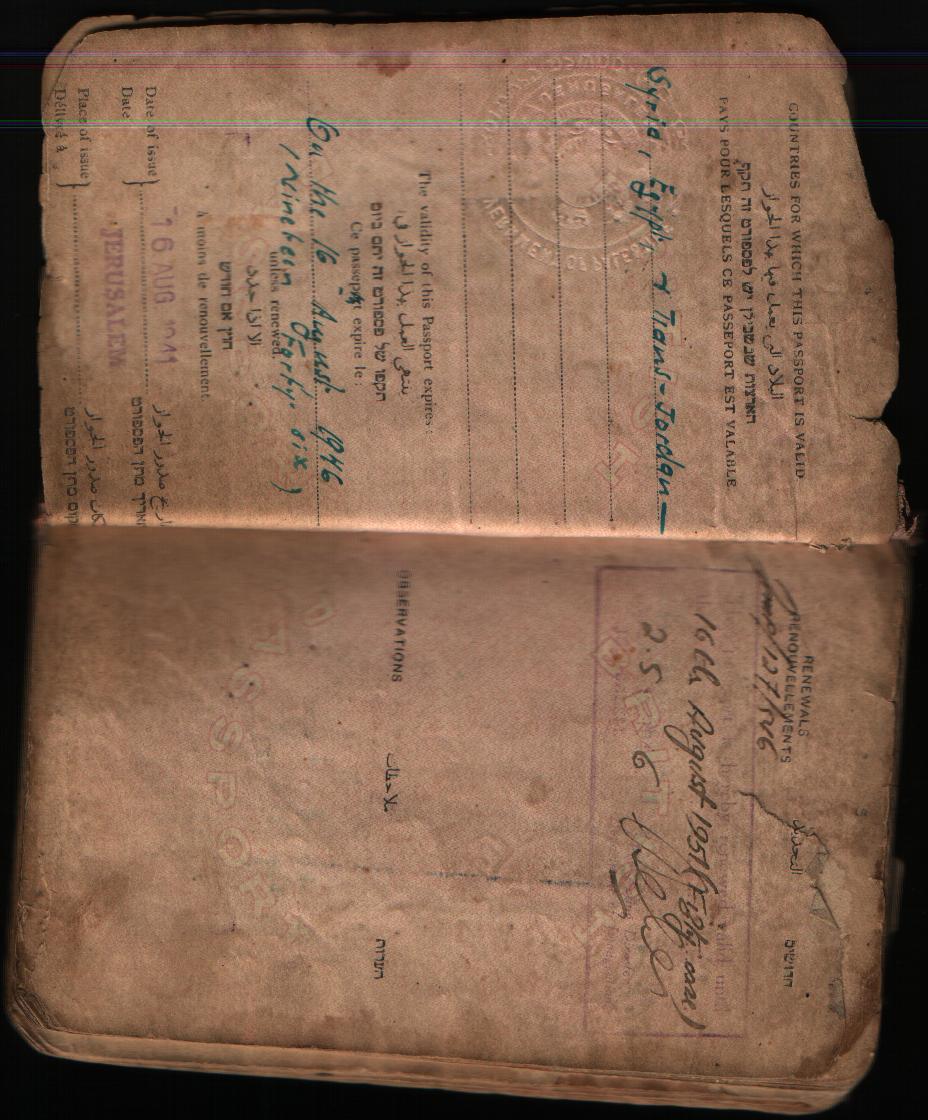 COUNTRIES FOR WHICH THIS PASSPORT IS VALID
البلاد التي يعمل فيها بهذا الجواز
הארצות שבשבילן יש לפספורט זה תוקף
PAYS POUR LESQUELS CE PASSEPORT EST VALABLE
Syria, Egypt & Trans-Jordan
The validity of this Passport expires:
ينتهي العمل بهذا الجواز في
תקפו של פספורט זה יתם ביום
Ce passeport expire le:
On the 16 August 1946
(Nineteen Forty-six)
unless renewed.
الا اذا جدد
חוץ אם חודש
à moins de renouvellement.
Date of issue
Date
16 AUG 1941
تاريخ صدور الجواز
תאריך מתן הפספורט
Place of issue
Délivré à
JERUSALEM
مكان صدور الجواز
מקום מתן הפספורט
RENEWALS
RENOUVELLEMENTS
التجديد
חדושים
16th August 1951 (Fifty one)
2.5 6
OBSERVATIONS
ملاحظات
הערות